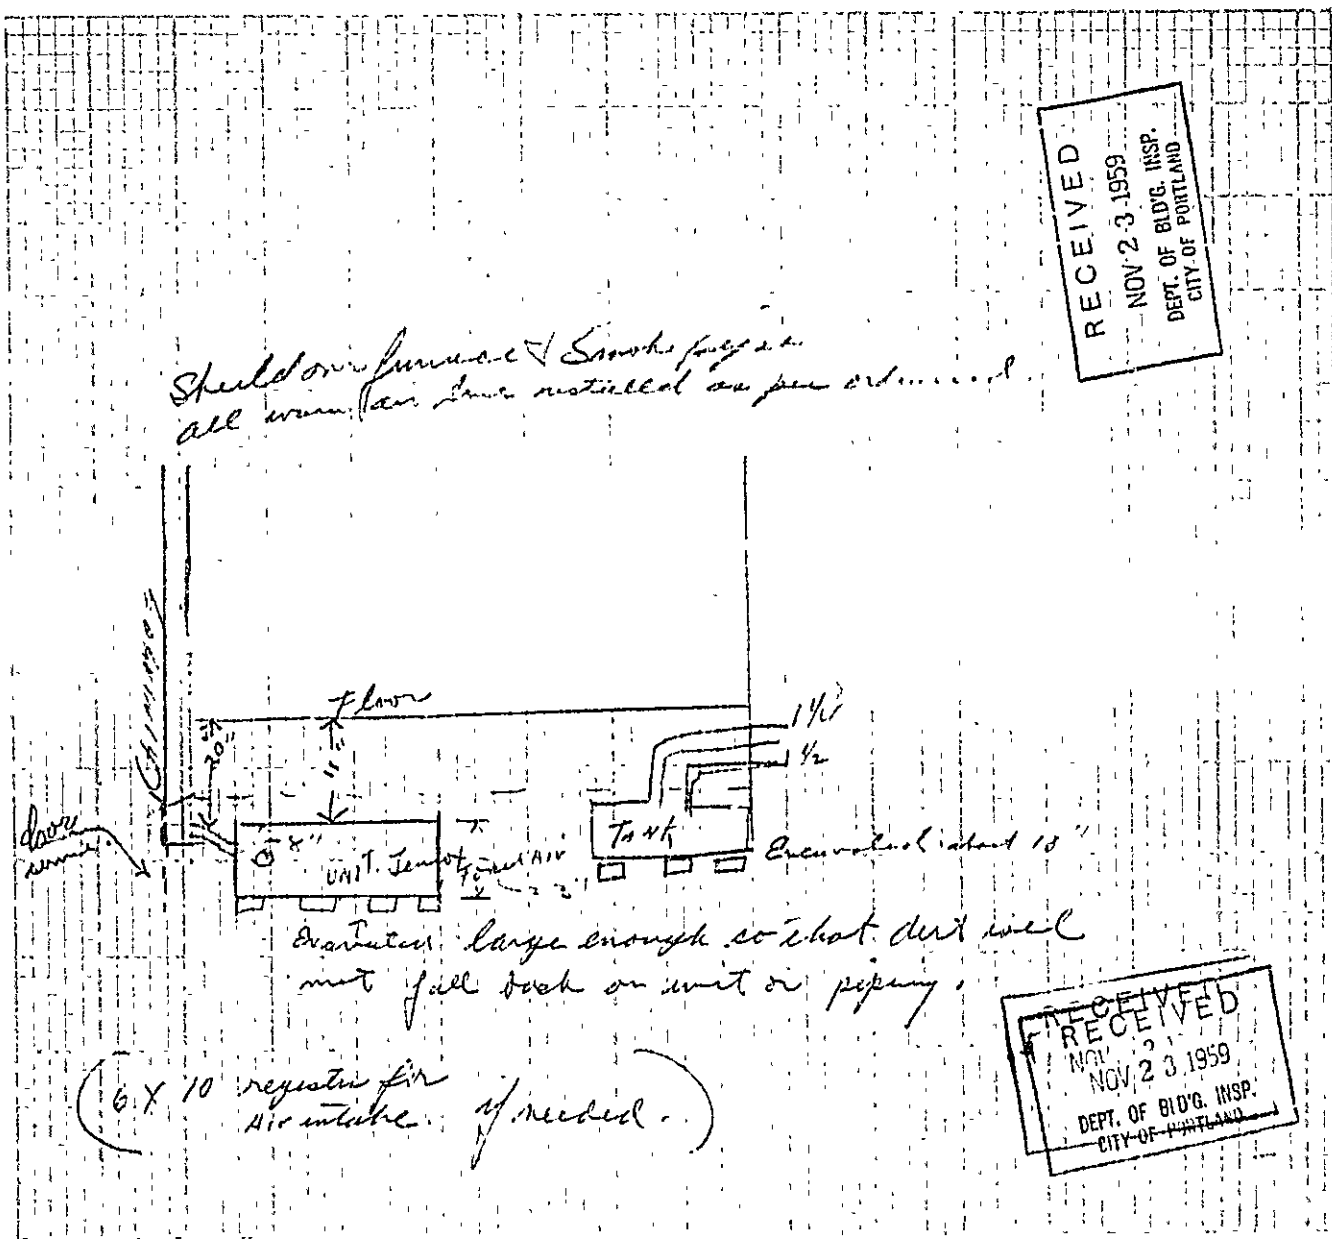 RECEIVED
NOV 23 1959
DEPT. OF BLD'G. INSP.
CITY OF PORTLAND
Shield over furnace & Smoke pipe
all warm air installed as per
CHIMNEY
Floor
20"
11"
1 1/2
1/2
door
8"
UNIT.
Forced AIR
TANK
Excavated about 18"
large enough so that dirt will
not fall back on unit or piping.
(6 X 10 register for
Air intake. if needed.)
RECEIVED
RECEIVED
NOV 2
NOV 23 1959
DEPT. OF BLD'G. INSP.
CITY OF PORTLAND